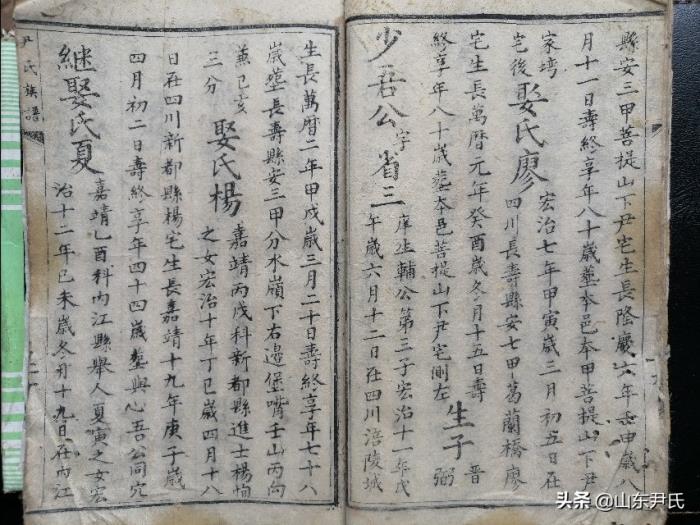 縣安三甲菩提山下尹宅生長隆慶六年壬申歲八
月十一日壽終享年八十歲塟本邑本甲菩提山下尹
家塆
宅後
娶氏廖
宏治七年甲寅歲三月初五日在
四川長壽縣安七甲葛蘭橋廖
宅生長萬曆元年癸酉歲冬月十五日壽
終享年八十歲塟本邑菩提山下尹宅側左
生子
晉
弼
少吾公
字省三
庠生輔公第三子宏治十一年戊
午歲六月十二日在四川涪陵城
生長萬曆二年甲戌歲三月二十日壽終享年七十八
歲塟長壽縣安三甲分水嶺下右邊堡嘴壬山丙向
兼巳亥
三分
娶氏楊
嘉靖丙戌科新都縣進士楊恂
之女宏治十年丁巳歲四月十八
日在四川新都縣楊宅生長嘉靖十九年庚子歲
四月初二日壽終享年四十四歲塟與心吾公同穴
繼娶氏夏
嘉靖乙酉科內江縣舉人夏寅之女宏
治十二年已未歲冬月十九日在內江
尹氏族譜
头条 @山东尹氏